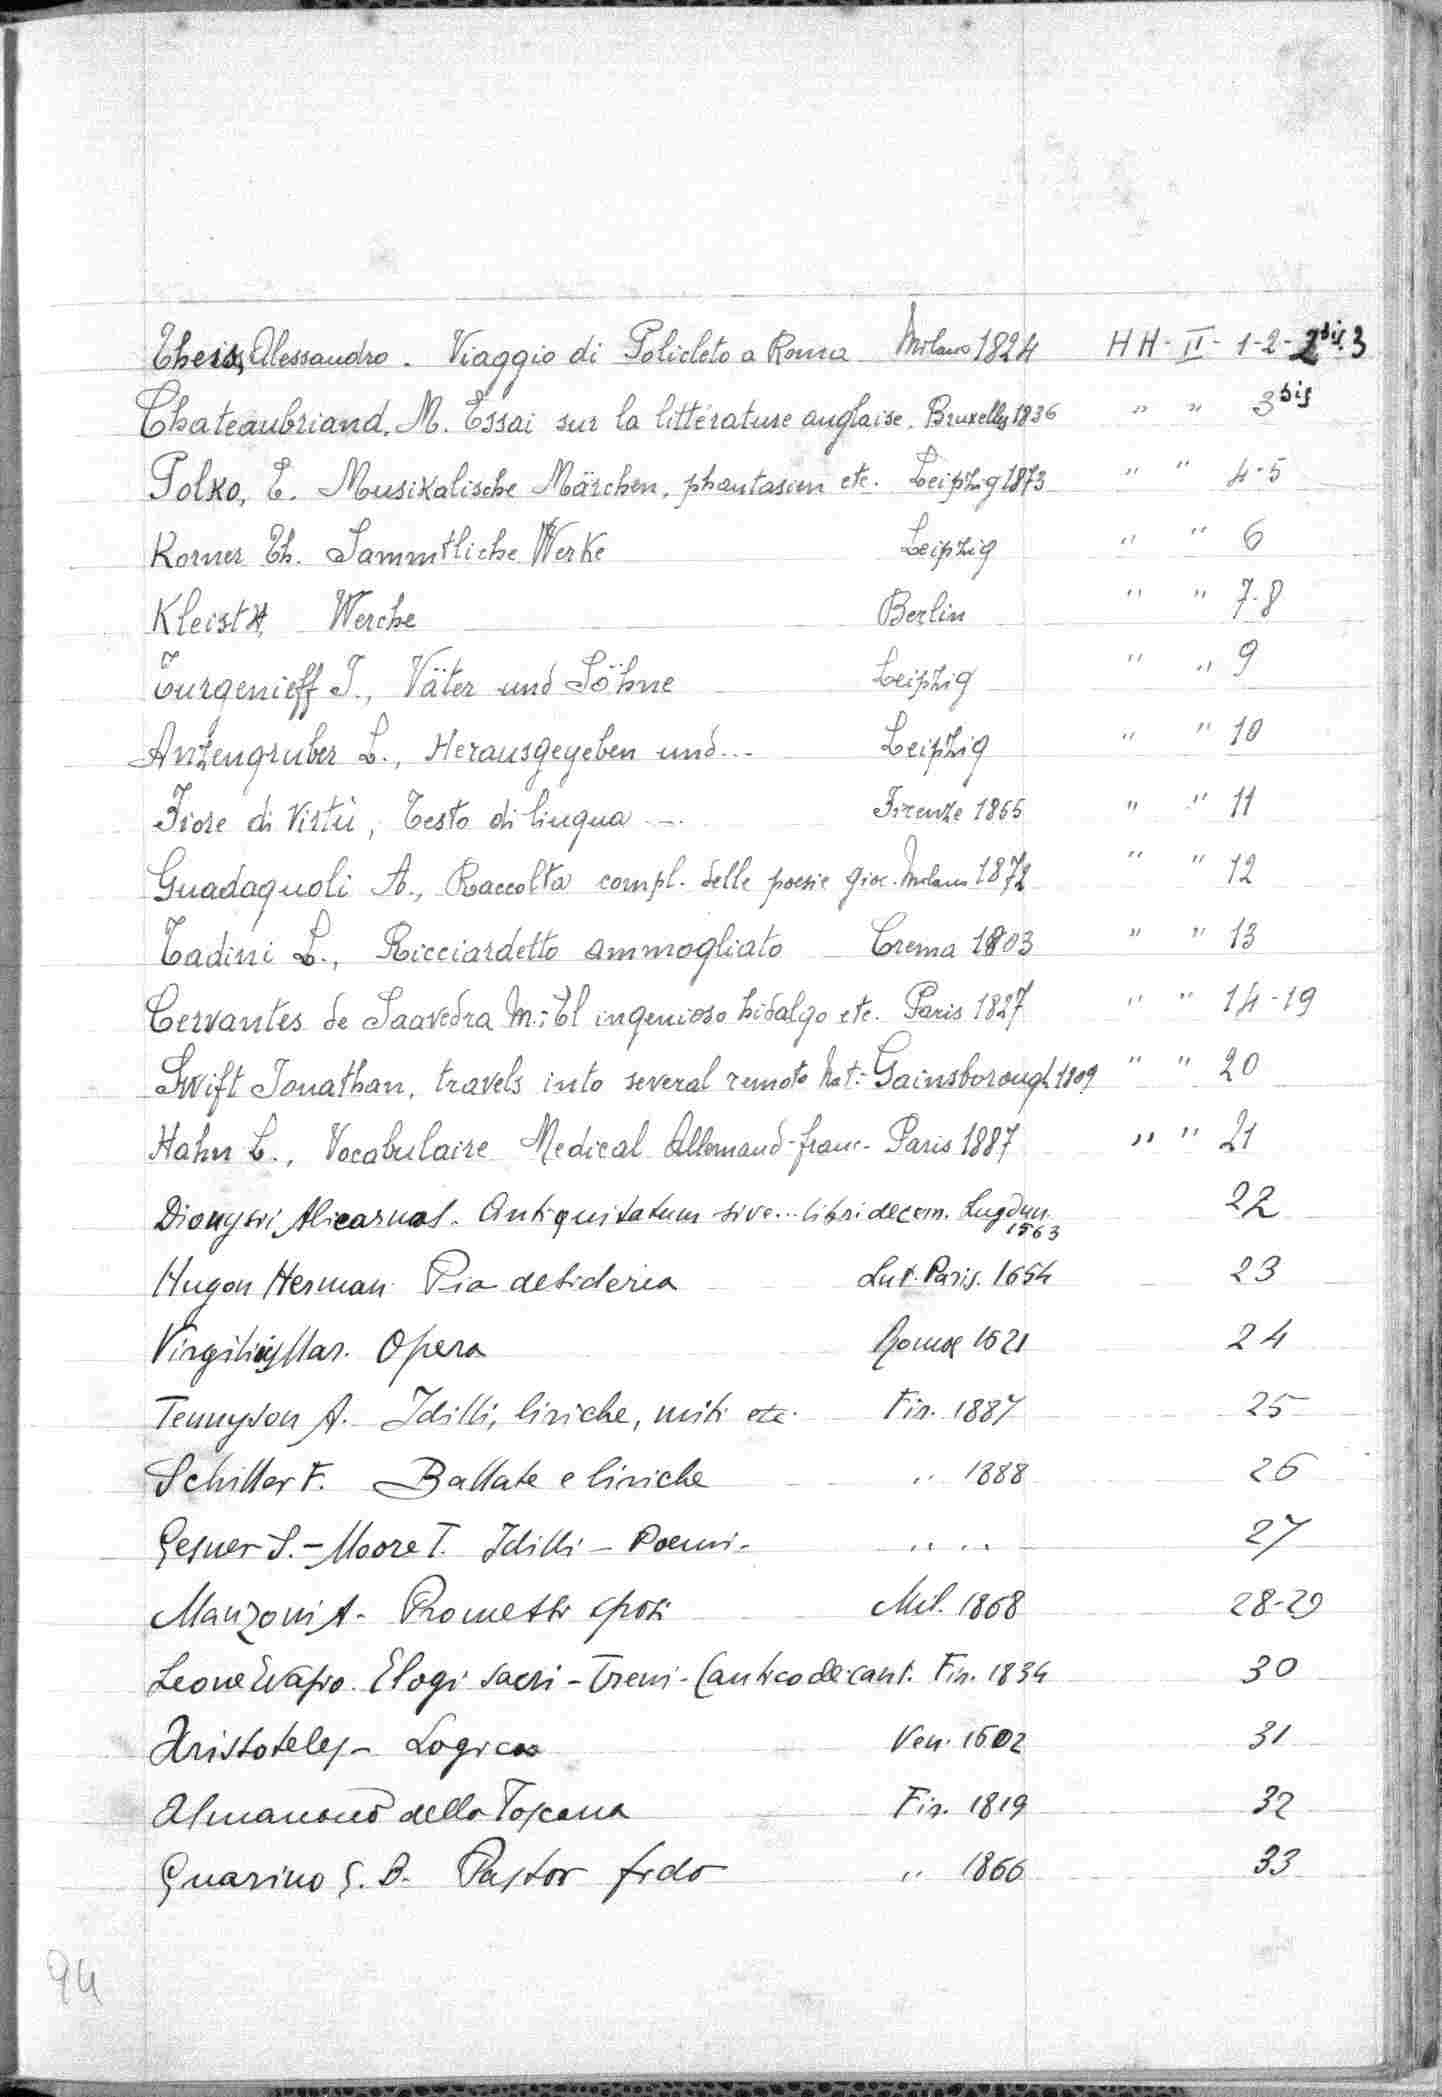 Theis, Alessandro. Viaggio di Policleto a Roma Milano 1824 HH - II - 1-2-2bis.3
Chateaubriand, M. Essai sur la littérature anglaise. Bruxelles 1836 " " 3bis
Polko, E. Musikalische Märchen, phantasien etc. Leipzig 1873 " " 4-5
Korner Th. Sammtliche Werke Leipzig " " 6
Kleist H, Werche Berlin " " 7-8
Turgenieff J., Väter und Söhne Leipzig " " 9
Anzengruber L., Herausgegeben und... Leipzig " " 10
Fiore di Virtù, Testo di lingua -. Firenze 1865 " " 11
Guadagnoli A., Raccolta compl. delle poesie gioc. Milano 1872 " " 12
Tadini L., Ricciardetto ammogliato Crema 1803 " " 13
Cervantes de Saavedra M.; El ingenioso hidalgo etc. Paris 1827 " " 14-19
Swift Jonathan, travels into several remote Nat: Gainsborough 1809 " " 20
Hahn L., Vocabulaire Medical Allemand-franc- Paris 1887 " " 21
Dionysii Alicarnas. Antiquitatum sive... libri decem. Lugdun. 1563 22
Hugon Herman Pia desideria Lut. Paris. 1654 23
Virgilius Mar. Opera Romae 1621 24
Tennyson A. Idilli, liriche, miti etc. Fir. 1887 25
Schiller F. Ballate e liriche " 1888 26
Gesner S. - Moore T. Idilli - Poemi- " " 27
Manzoni A- Promessi sposi Mil. 1868 28-29
Leone Evasio. Elogi sacri - Treni - Cantico dei cant. Fir. 1834 30
Aristoteles - Logica Ven. 1602 31
Almanacco della Toscana Fir. 1819 32
Guarino G. B. Pastor fido " 1866 33
94